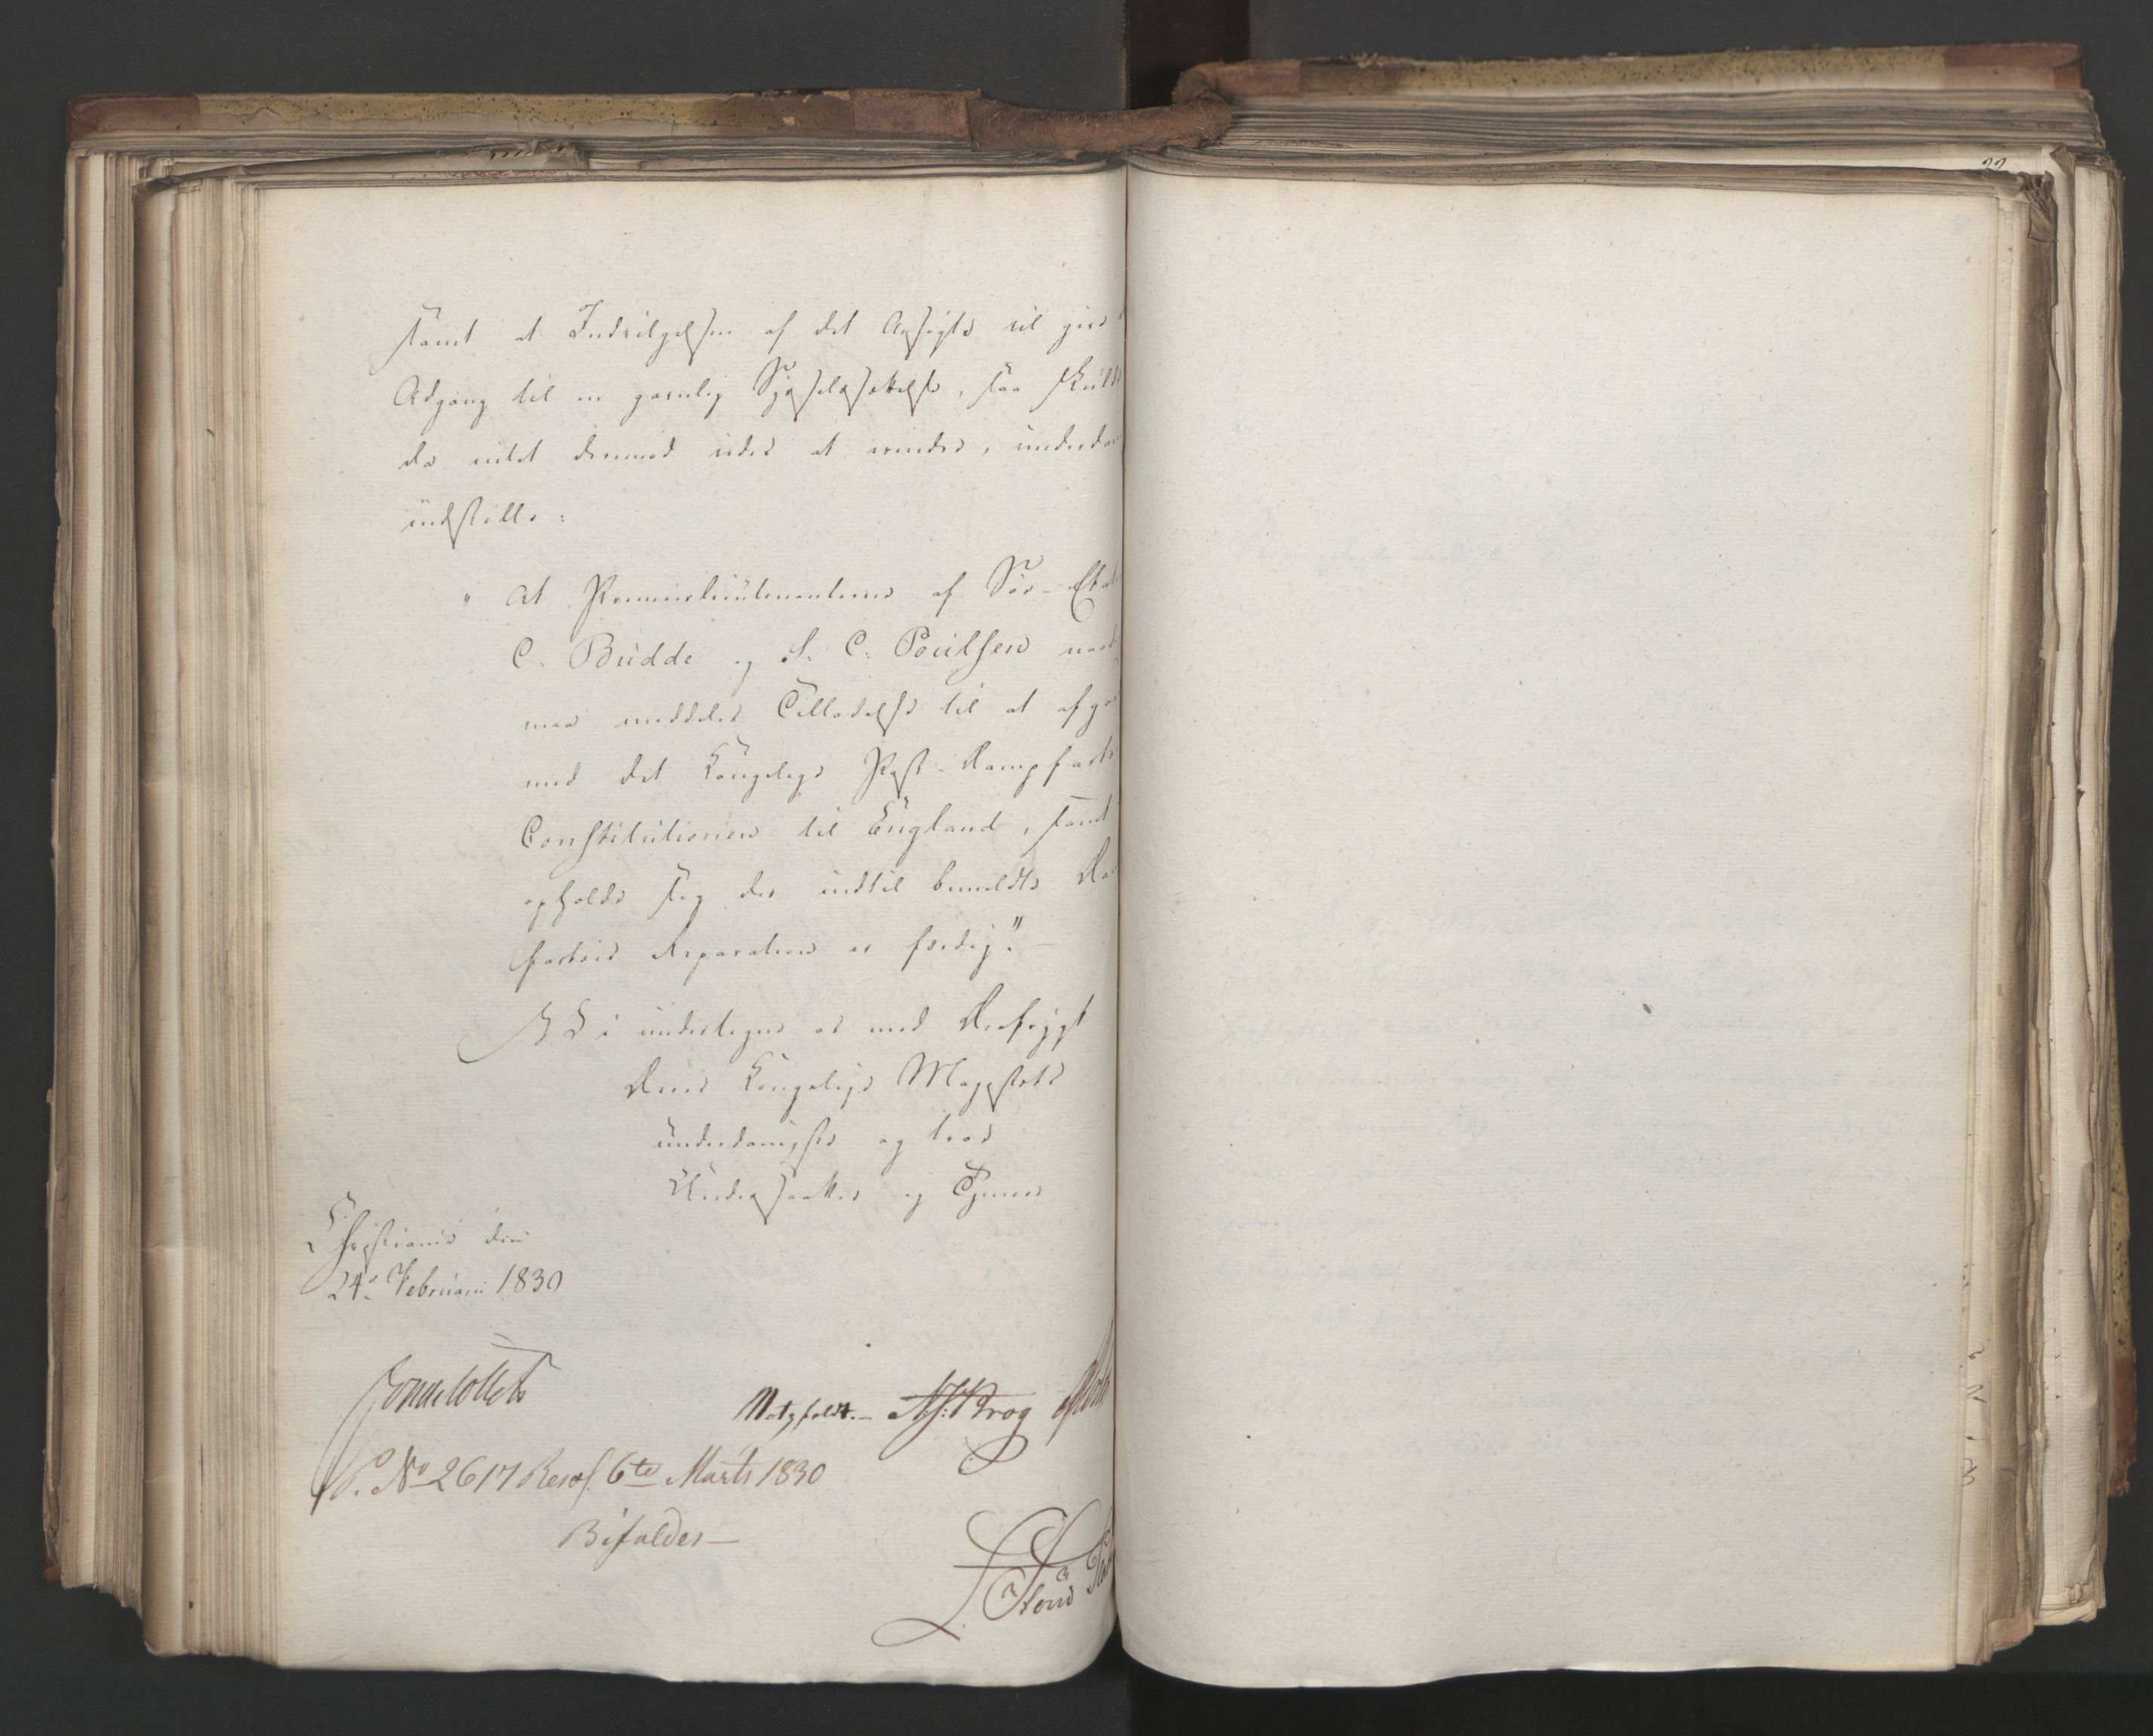 22
samt at Indvilgelsen af det Ansøgte vil give
Adgang til en gavnlig Sysselsættelse, saa skulde
da intet derimod vides at erindre, underdan
indstille:
" At Premierlieutenanterne af Søe-Etat
C. Budde og S. C. Poulsen naad
maa meddeles Tilladelse til at afgaa
med det Kongelige Post-Dampfartø
Constitutionen til England, samt
opholde sig der indtil bemeldte Da
fartøis Reparation er færdig". —
Vi undertegne os med Ærefrygt
Deres Kongelige Majestæts
underdanigste og troe
Undersaatter og Tjenere
Christiania den
24de Februari 1830
Jonas Collett
Motzfeldt. — Krog
P. No 2617 Resol. 6te Marts 1830
Bifaldes —